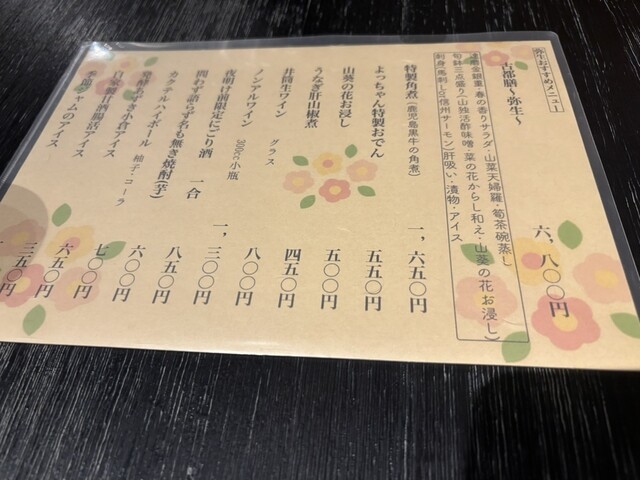 弥生おすすめメニュー
古都膳〜弥生〜 六、八〇〇円
金銀重・春の香りサラダ・山菜天婦羅・筍茶碗蒸し
旬鉢三点盛り(山独活酢味噌 菜の花からし和え・山葵の花お浸し)
刺身(馬刺しor信州サーモン)肝吸い・漬物・アイス
特製角煮(鹿児島黒牛の角煮) 一、六五〇円
よっちゃん特製おでん 五五〇円
うなぎ肝山椒煮 五〇〇円
山葵の花お浸し 四五〇円
井筒生ワイン グラス 八〇〇円
ノンアルワイン 300cc小瓶 一、三〇〇円
夜明け前限定にごり酒 一合 八五〇円
問わず語らず名も無き焼酎(芋) 六〇〇円
カクテルハイボール 柚子・コーラ 七〇〇円
発酵あずき小倉アイス 六五〇円
自家製甘酒腸活アイス 三五〇円
季節ジャムのアイス